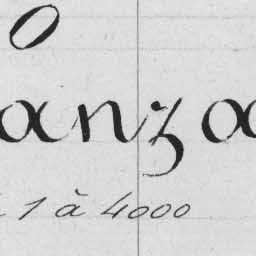 0
anza
1 à 4000